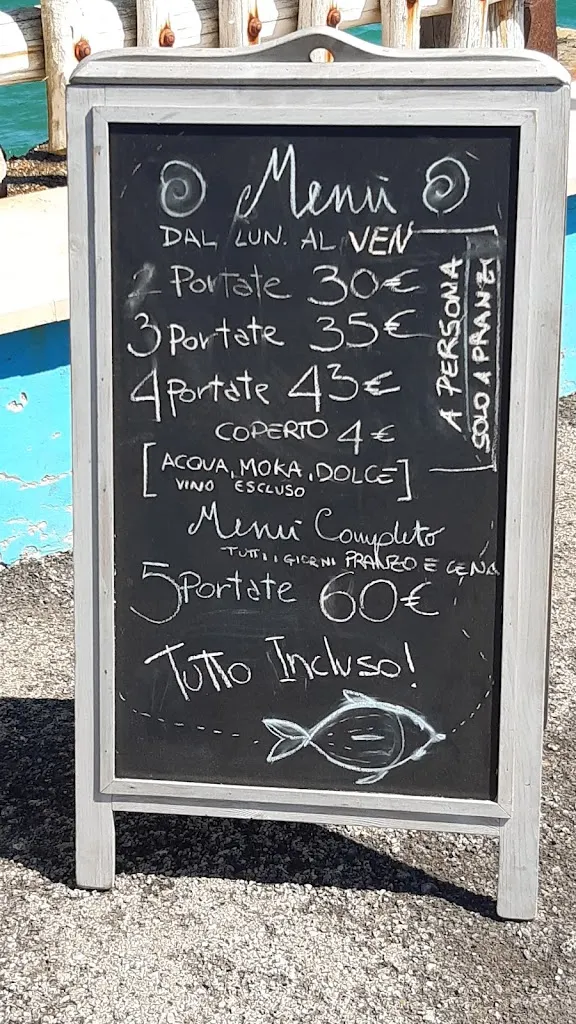 Menù
DAL LUN. AL VEN
2 Portate 30€
3 Portate 35€
4 Portate 43€
A PERSONA
SOLO A PRANZO
COPERTO 4€
[ACQUA, MOKA, DOLCE]
VINO ESCLUSO
Menù Completo
TUTTI I GIORNI PRANZO E CENA
5 Portate 60€
Tutto Incluso!